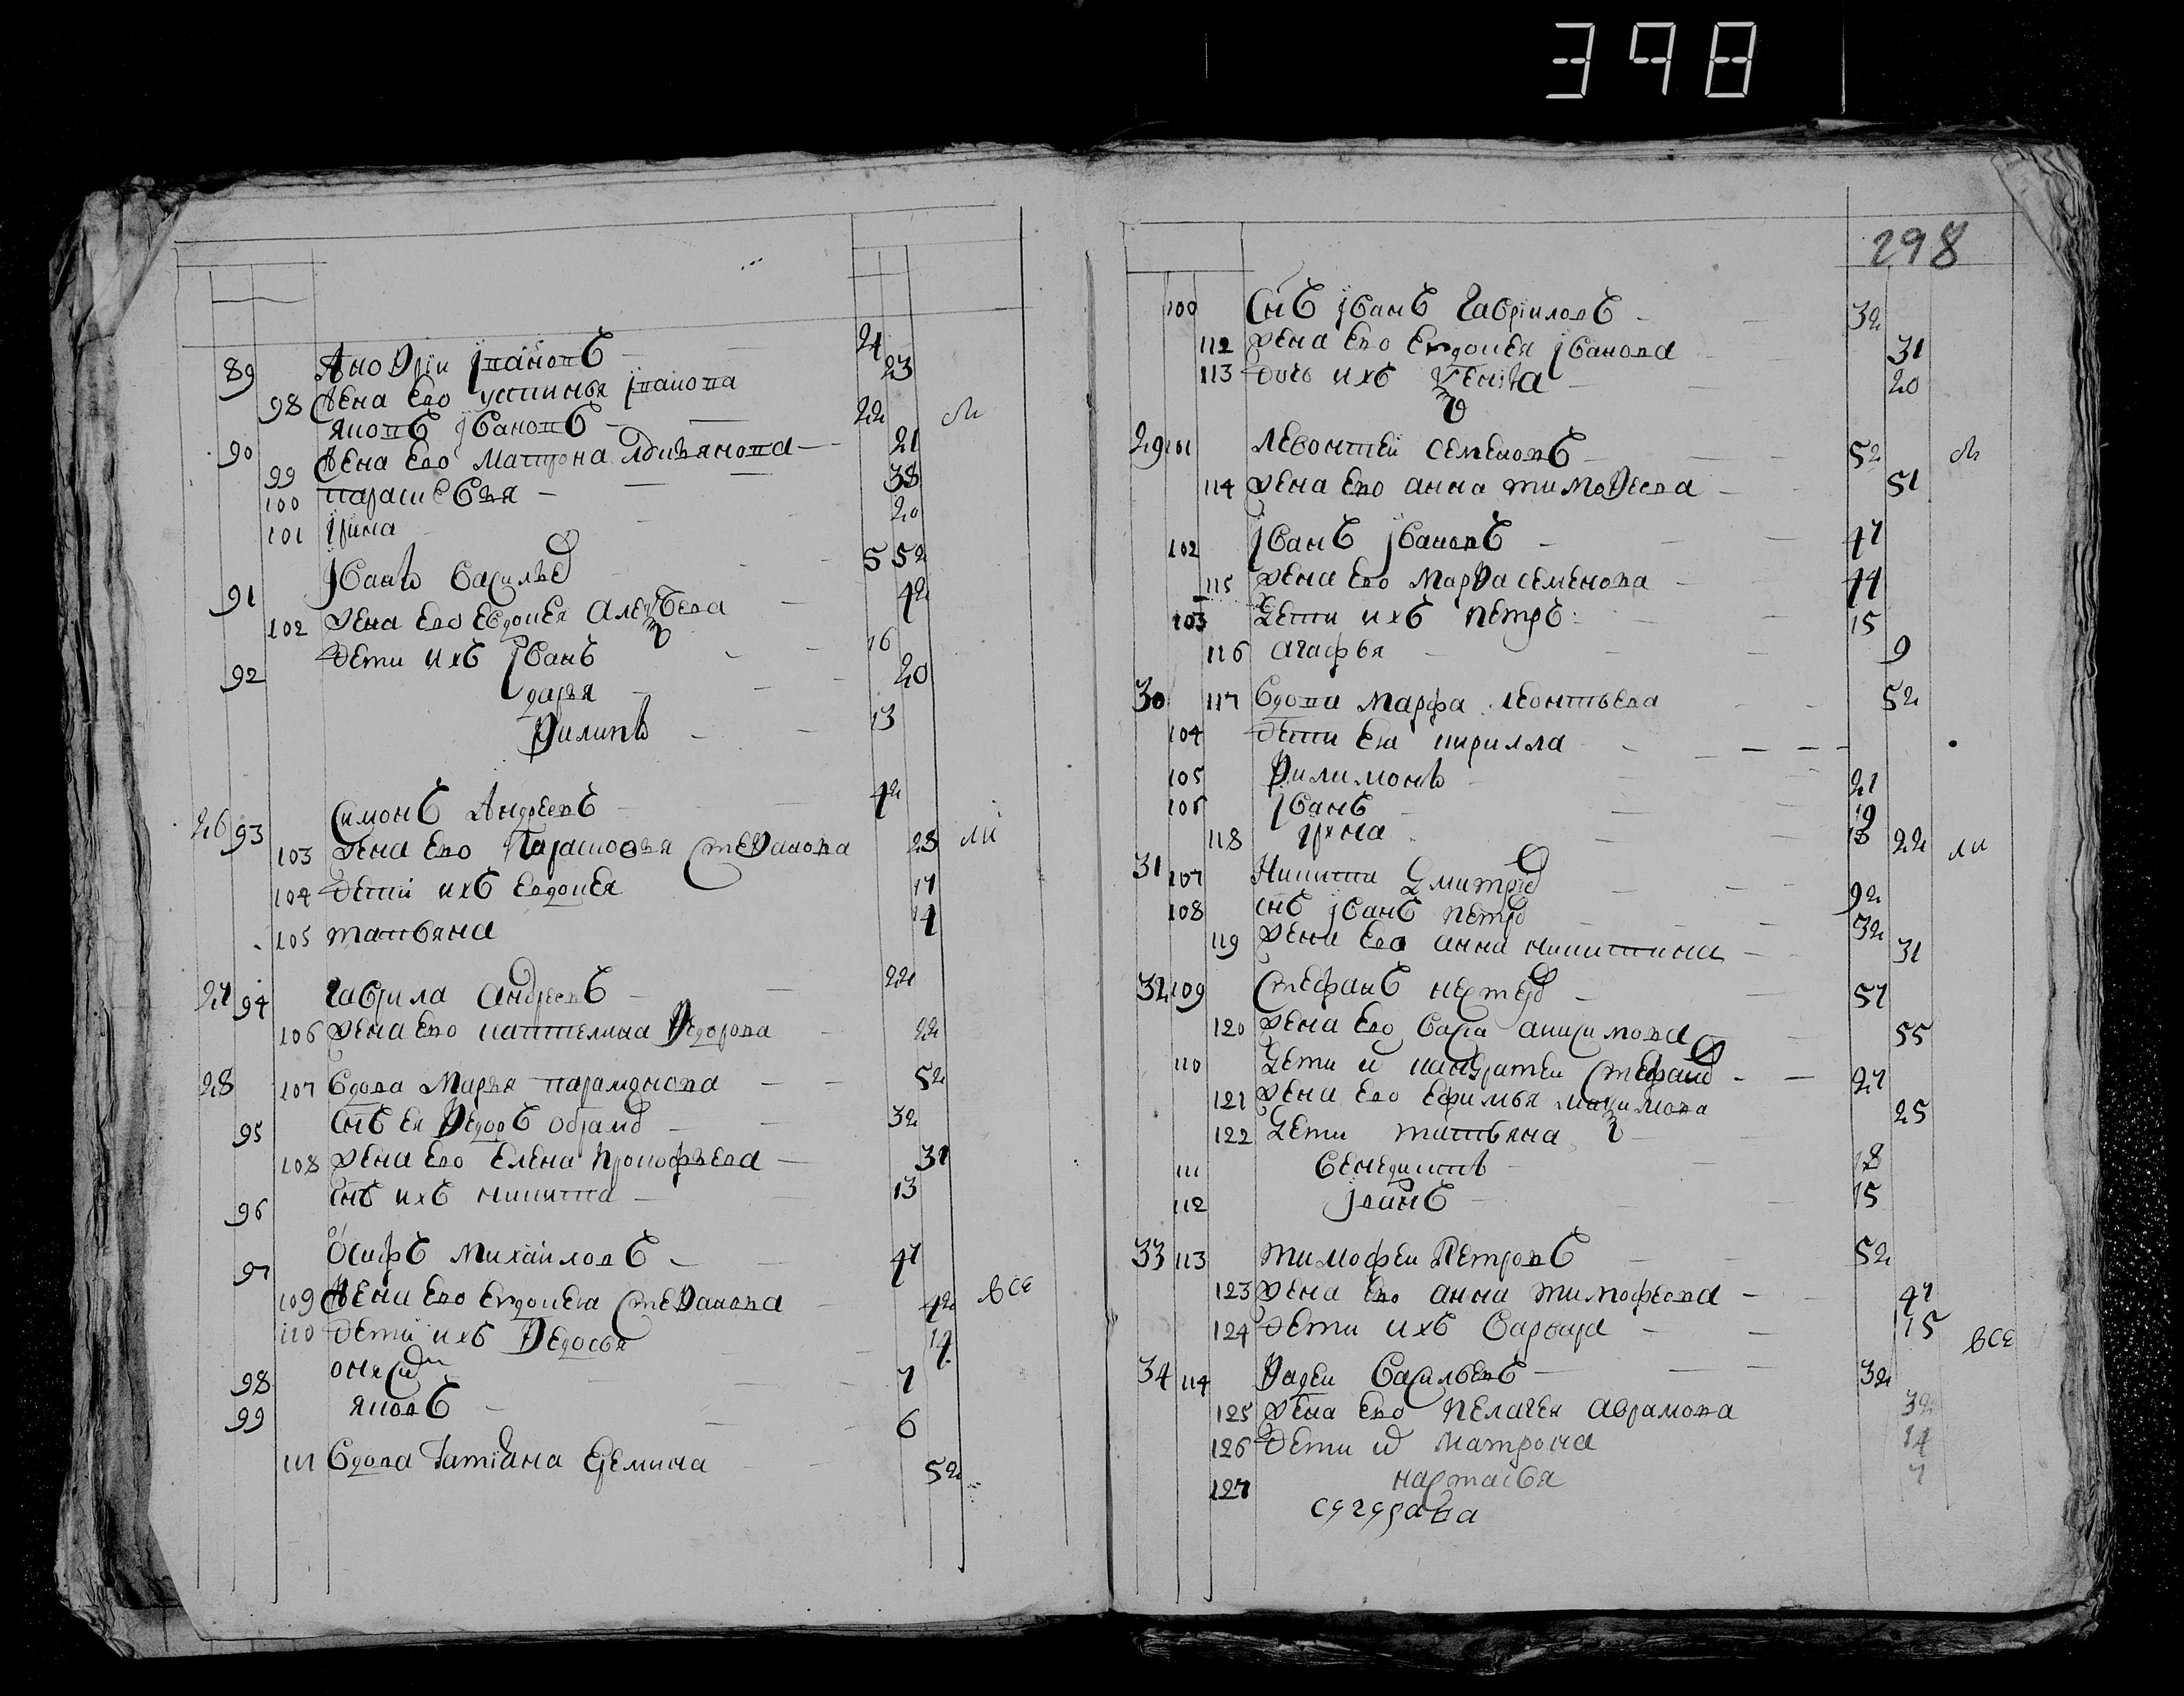 398
89 Андреи Iвановъ 24
98 Жена Ево устинья Iванова 23
90 Яковъ Iвановъ 22
99 Жена Ево Матрона 21
100 парасковья 38
101 Iрина 20
91 Iванъ Василье 52
102 Жена Ево Евдокея Алеѯѣева 42
92 Дети ихъ Iванъ 16
дарья 20
Филипъ 13
26 93 Симонъ Андреевъ 42
103 Жена Ево Парасковья Стефанова 28
104 Дети ихъ Евдокея 17
105 татьяна 14
27 94 гаврила андреевъ 22
106 Жена Ево катерина Федорова 22
28 107 Вдова Марья парамонова 52
95 Снъ Ея Федоръ 32
108 Жена Ево Елена прокофьева 31
96 Снъ ихъ никита 13
97 Осифъ Михаиловъ 47
109 Жена Ево Евдокея Стефанова 42 все
110 Дети ихъ Федосья 14
98 7
99 яковъ 6
111 Вдова Татiана Еремина 52
298
100 Снъ Iванъ гавриловъ 32
112 Жена Ево Евдокея Iванова 31
113 Дочь ихъ 20
29 101 Левонтеи Семеновъ 52
114 Жена Ево анна тимофеева 51
102 Iванъ Iвановъ 47
115 Жена Ево Марфа семенова 44
103 Дети ихъ петръ 15
116 агафья 9
30 117 Вдова Марфа леонтьева 52
104 Дети Ея кирилла
105 Филимонъ 21
106 Iванъ 19
118 Iрина 18 22
31 107 Никита Дмитре 92
108 снъ Iванъ петро 32
119 Жена Ево анна никитина 31
32 109 Стефанъ нестеро 57
120 Жена Ево Васса анисимова 55
110 Дети и кандратеи Стефано 27
121 Жена Ево Ефимья маѯимова 25
122 Дети татьяна
111 Венедиктъ 18
112 Iванъ 15
33 113 тимофеи Петровъ 52
123 Жена Ево анна тимофеева 47
124 Дети ихъ Варвара 15 все
34 114 Фадеи Васильевъ 32
125 Жена Ево пелагея аврамова 32
126 Дети и Матрона 14
127 настасья 7